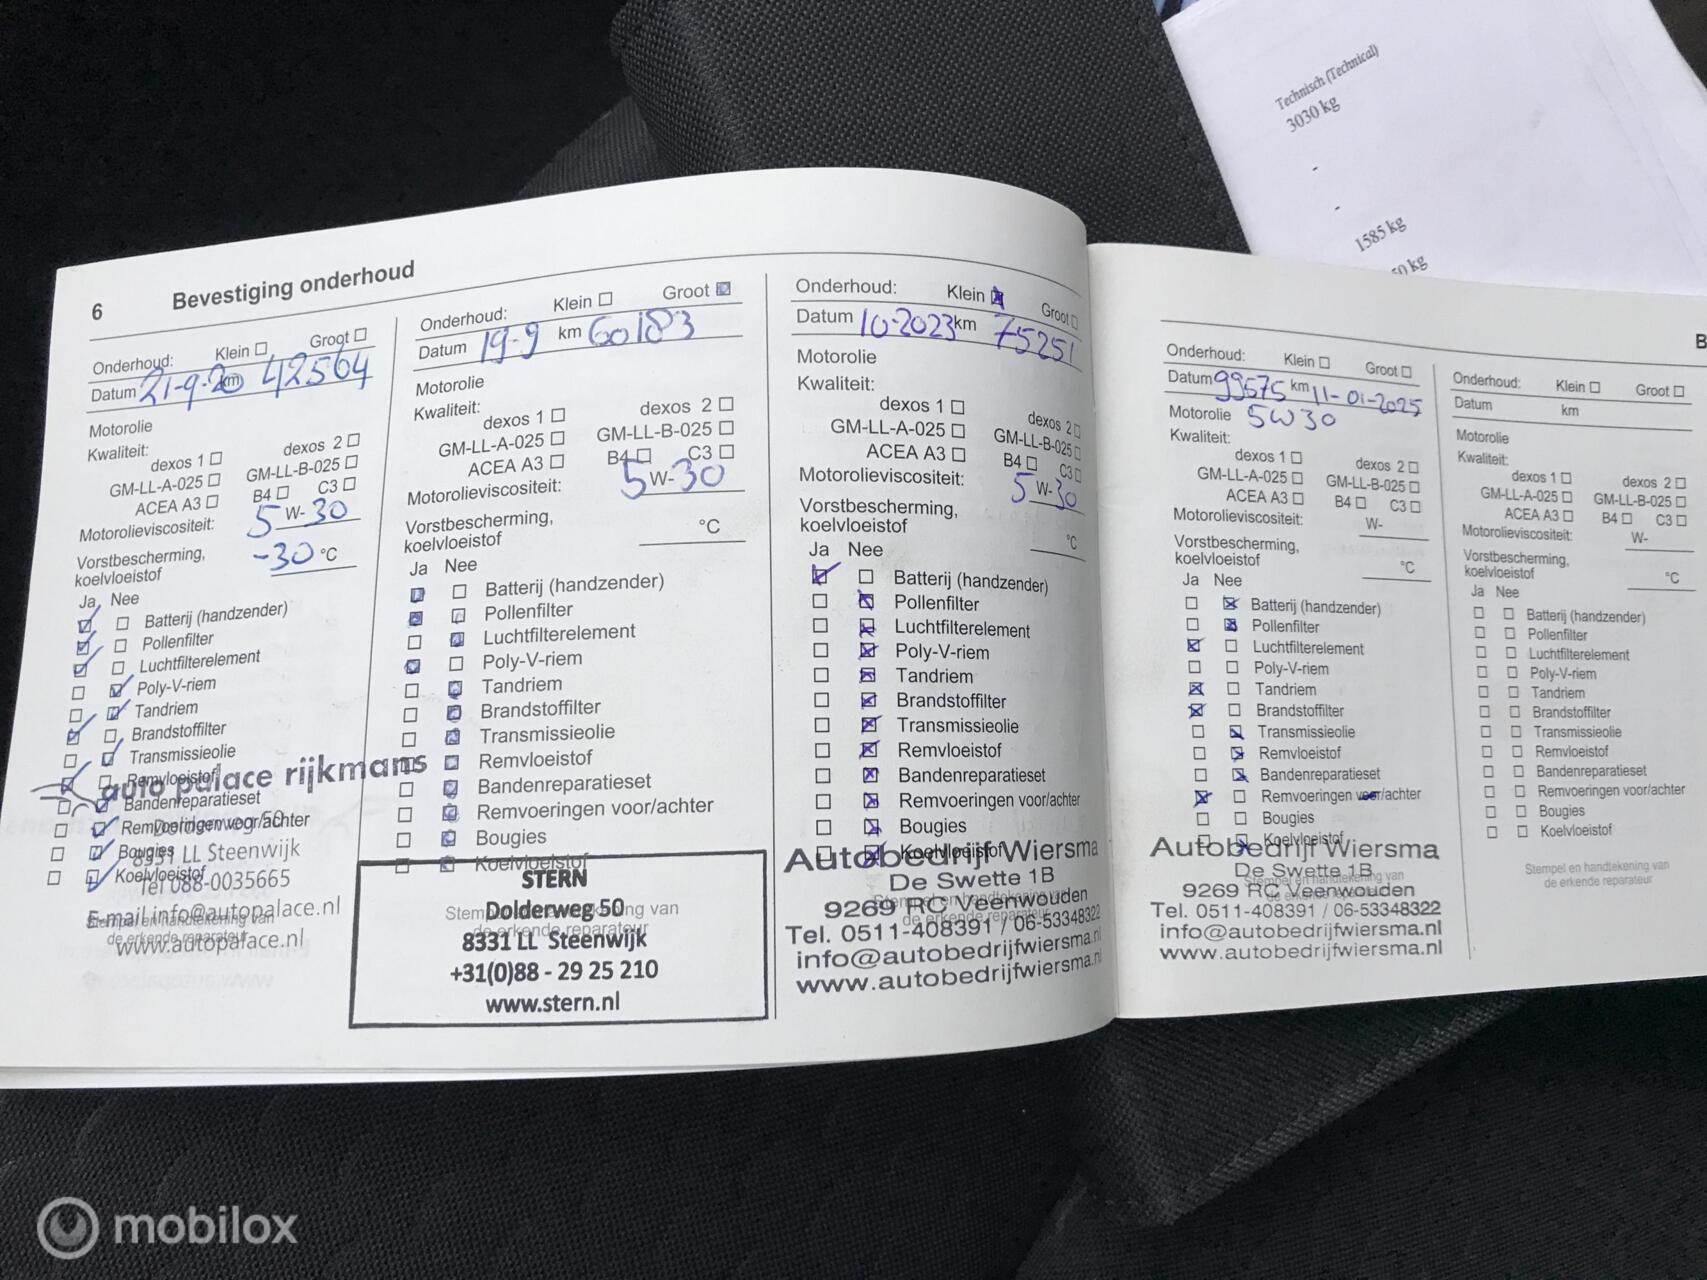 Technisch (Technical)
3030 kg
-
-
1585 kg
50 kg
6 Bevestiging onderhoud
Onderhoud: Klein Groot
Datum 21-9-20 km 42564
Motorolie
Kwaliteit:
dexos 1 dexos 2
GM-LL-A-025 GM-LL-B-025
ACEA A3 B4 C3
Motorolieviscositeit: 5 W-30
Vorstbescherming,
koelvloeistof -30 °C
Ja Nee
Batterij (handzender)
Pollenfilter
Luchtfilterelement
Poly-V-riem
Tandriem
Brandstoffilter
Transmissieolie
Remvloeistof
auto palace rijkmans
Bandenreparatieset
Remvoeringen voor/achter
Dolderweg 50
Bougies
8331 LL Steenwijk
Koelvloeistof
Tel 088-0035665
E-mail info@autopalace.nl
Stempel en handtekening van
de erkende reparateur
www.autopalace.nl
Onderhoud: Klein Groot
Datum 19-9 km 60183
Motorolie
Kwaliteit:
dexos 1 dexos 2
GM-LL-A-025 GM-LL-B-025
ACEA A3 B4 C3
Motorolieviscositeit: 5 W-30
Vorstbescherming,
koelvloeistof °C
Ja Nee
Batterij (handzender)
Pollenfilter
Luchtfilterelement
Poly-V-riem
Tandriem
Brandstoffilter
Transmissieolie
Remvloeistof
Bandenreparatieset
Remvoeringen voor/achter
Bougies
Koelvloeistof
STERN
Dolderweg 50
Stempel en handtekening van
de erkende reparateur
8331 LL Steenwijk
+31(0)88 - 29 25 210
www.stern.nl
Onderhoud: Klein Groot
Datum 10-2023 km 75251
Motorolie
Kwaliteit:
dexos 1 dexos 2
GM-LL-A-025 GM-LL-B-025
ACEA A3 B4 C3
Motorolieviscositeit: 5 W-30
Vorstbescherming,
koelvloeistof °C
Ja Nee
Batterij (handzender)
Pollenfilter
Luchtfilterelement
Poly-V-riem
Tandriem
Brandstoffilter
Transmissieolie
Remvloeistof
Bandenreparatieset
Remvoeringen voor/achter
Bougies
Koelvloeistof
Autobedrijf Wiersma
De Swette 1B
Stempel en handtekening van
9269 RC Veenwouden
de erkende reparateur
Tel. 0511-408391 / 06-53348322
info@autobedrijfwiersma.nl
www.autobedrijfwiersma.nl
Onderhoud: Klein Groot
Datum 99575 km 11-01-2025
Motorolie 5W30
Kwaliteit:
dexos 1 dexos 2
GM-LL-A-025 GM-LL-B-025
ACEA A3 B4 C3
Motorolieviscositeit: W-
Vorstbescherming,
koelvloeistof °C
Ja Nee
Batterij (handzender)
Pollenfilter
Luchtfilterelement
Poly-V-riem
Tandriem
Brandstoffilter
Transmissieolie
Remvloeistof
Bandenreparatieset
Remvoeringen voor/achter
Bougies
Koelvloeistof
Autobedrijf Wiersma
De Swette 1B
Stempel en handtekening van
9269 RC Veenwouden
de erkende reparateur
Tel. 0511-408391 / 06-53348322
info@autobedrijfwiersma.nl
www.autobedrijfwiersma.nl
B
Onderhoud: Klein Groot
Datum km
Motorolie
Kwaliteit:
dexos 1 dexos 2
GM-LL-A-025 GM-LL-B-025
ACEA A3 B4 C3
Motorolieviscositeit: W-
Vorstbescherming,
koelvloeistof °C
Ja Nee
Batterij (handzender)
Pollenfilter
Luchtfilterelement
Poly-V-riem
Tandriem
Brandstoffilter
Transmissieolie
Remvloeistof
Bandenreparatieset
Remvoeringen voor/achter
Bougies
Koelvloeistof
Stempel en handtekening van
de erkende reparateur
mobilox